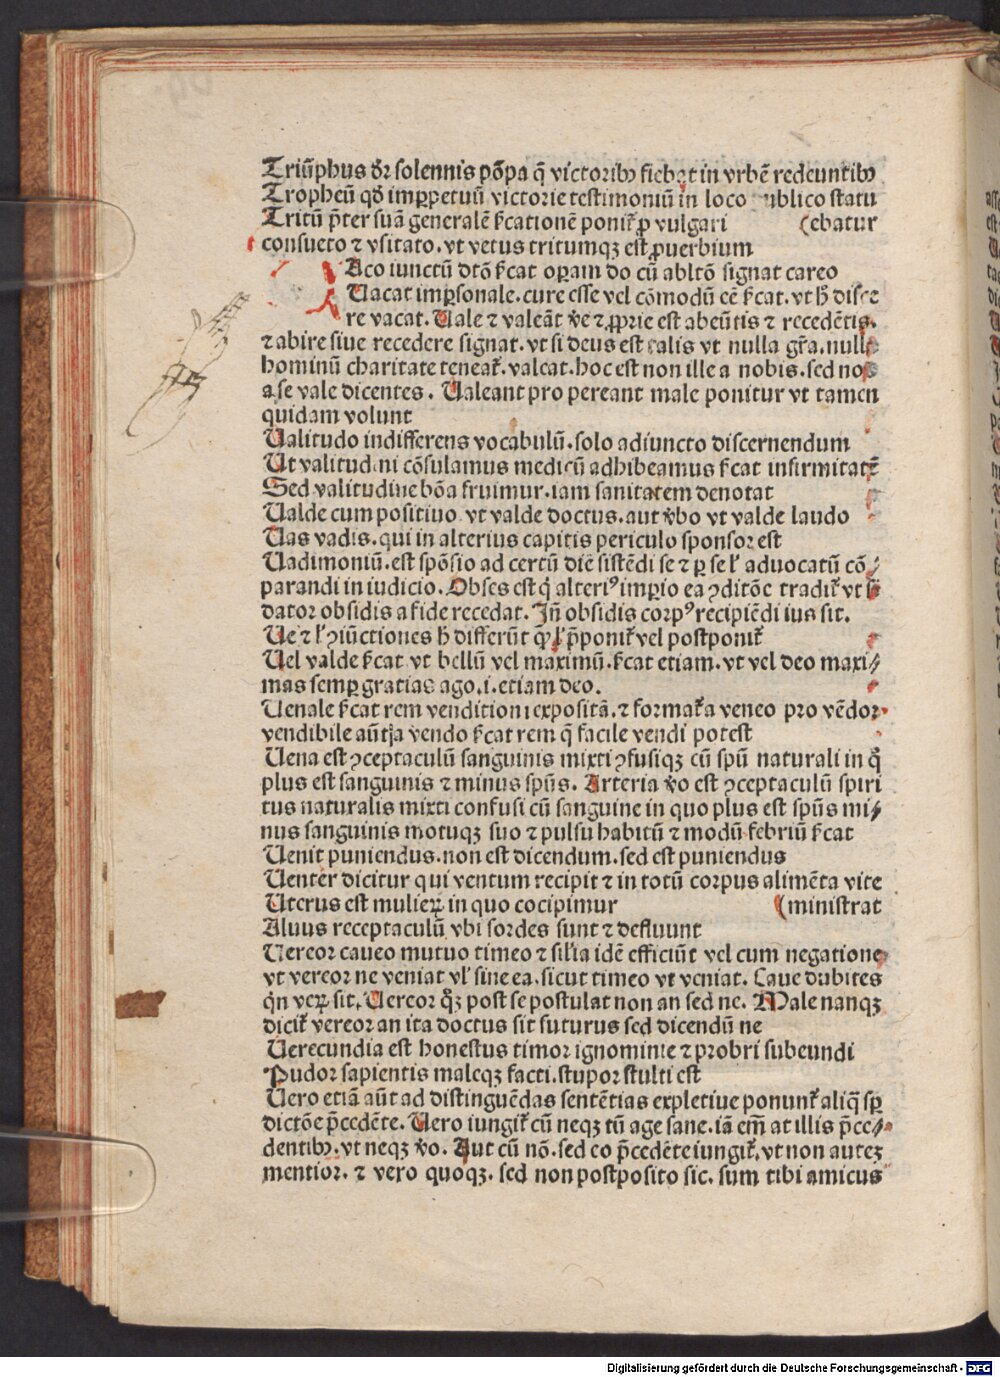 Triũphus dr̃ solennis põpa q̃ victoribꝰ fiebat in vrbẽ redeuntibꝰ
Tropheũ qd̃ imꝑpetuũ victorie testimoniũ in loco ublico statu
Tritũ p̃ter suã generalẽ ſc̃ationẽ ponit̃ ꝓ vulgari (ebatur
consueto ⁊ vsitato. vt vetus tritumqꝫ est ꝓuerbium
Aco iunctũ dtõ ſc̃at oꝑam do cũ abltõ signat careo
Uacat imꝑsonale. cure esse vel cõmodũ eẽ ſc̃at. vt h̃ disce
re vacat. Uale ⁊ valeãt v̾e ⁊ ꝓprie est abeũtis ⁊ recedẽtis.
⁊ abire siue recedere signat. vt si deus est talis vt nulla gr̃a. null
hominũ charitate teneat̃. valeat. hoc est non ille a nobis. sed no
a se vale dicentes. Ualeant pro pereant male ponitur vt tamen
quidam volunt
Ualitudo indifferens vocabulũ. solo adiuncto discernendum
Ut valitudini cõsulamus medicũ adhibeamus ſc̃at infirmitatẽ
Sed valitudine bõa fruimur. iam sanitatem denotat
Ualde cum positiuo. vt valde doctus. aut v̾bo vt valde laudo
Uas vadis. qui in alterius capitis periculo sponsor est
Uadimoniũ. est spõsio ad certũ diẽ sistẽdi se ⁊ ꝑ se ł aduocatũ cõ⸗
parandi in iudicio. Obses est q̇ alteriꝰ imꝑio ea ꝯditõe tradit̃ vt si
dator obsidis a fide recedat. Iñ obsidis corpꝰ recipiẽdi ius sit.
Ue ⁊ ł ꝯiũctiones h̃ differũt q ł p̃ponit̃ vel postponit̃
Uel valde ſc̃at vt bellũ vel maximũ. ſc̃at etiam. vt vel deo maxi⸗
mas semꝑ gratias ago. i. etiam deo.
Uenale ſc̃at rem venditioni expositã. ⁊ format̃ a veneo pro vẽdor
vendibile aũt a vendo ſc̃at rem q̃ facile vendi potest
Uena est ꝯceptaculũ sanguinis mixti ꝯfusiqꝫ cũ spũ naturali in q̊
plus est sanguinis ⁊ minus spũs. Arteria v̾o est ꝯceptaculũ spiri
tus naturalis mixti confusi cũ sanguine in quo plus est spũs mi⸗
nus sanguinis motuqꝫ suo ⁊ pulsu habitũ ⁊ modũ febriũ ſc̃at
Uenit puniendus. non est dicendum. sed est puniendus
Uenter dicitur qui ventum recipit ⁊ in totũ corpus alimẽta vite
Uterus est mulieꝝ in quo cocipimur (ministrat
Aluus receptaculũ vbi sordes sunt ⁊ defluunt
Uereor caueo mutuo timeo ⁊ sił̃ia idẽ efficiũt vel cum negatione
vt vereor ne veniat vł sine ea. sicut timeo vt veniat. Caue dubites
q̇n veꝝ sit. Uereor q̊ꝫ post se postulat non an sed ne. Male nanqꝫ
dicit̃ vereor an ita doctus sit futurus sed dicendũ ne
Uerecundia est honestus timor ignominie ⁊ probri subeundi
Pudor sapientis maleqꝫ facti. stupor stulti est
Uero etiã aũt ad distinguẽdas sentẽtias expletiue ponunt̃ aliq̃ sꝑ
dictõe p̃cedẽte. Uero iungit̃ cũ neqꝫ tũ age sane. iã em̃ at illis p̃ce⸗
dentibꝰ. vt neqꝫ v̾o. Aut cũ nõ. sed eo p̃cedẽte iungit̃. vt non auteꝫ
mentior. ⁊ vero quoqꝫ. sed non postposito sic. sum tibi amicus
Digitalisierung gefördert durch die Deutsche Forschungsgemeinschaft - DFG